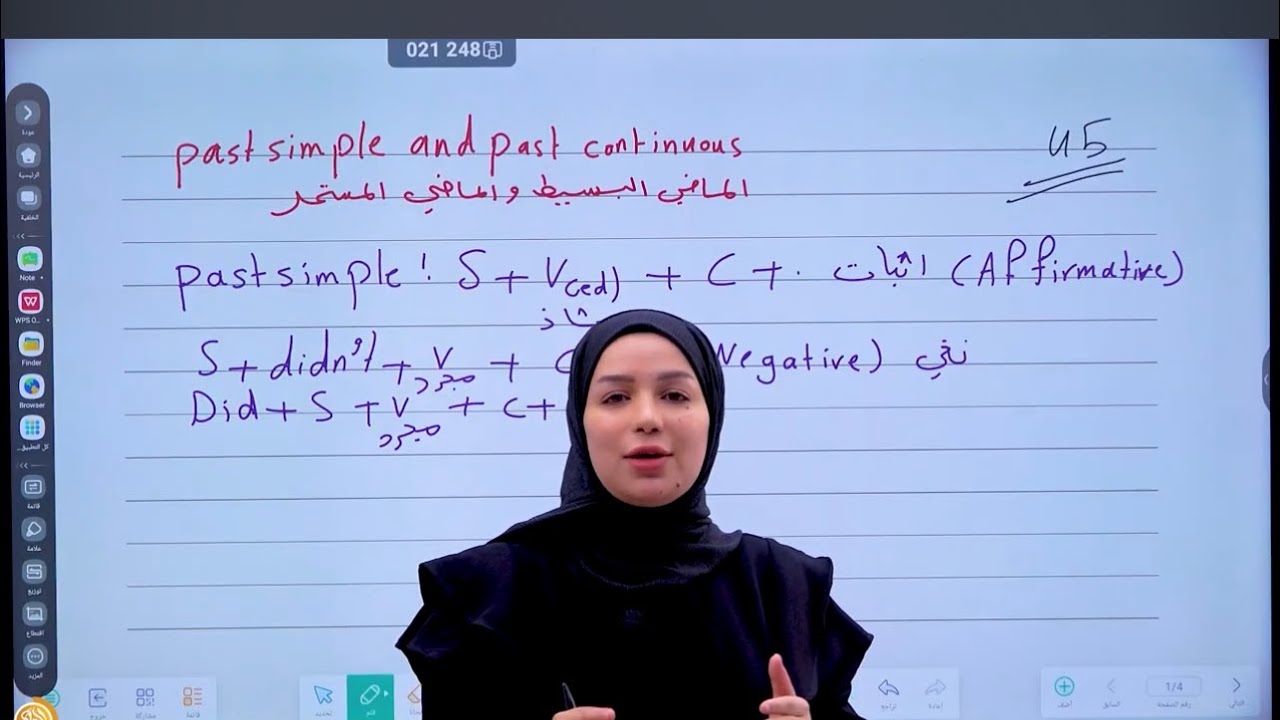 021 248
past simple and past continuous
U5
الماضي البسيط والماضي المستمر
past simple: S + V(ed) + C + . اثبات (Affirmative)
شاذ
S + didn't + V + C Negative) نفي
مجرد
Did + S + V + C +
مجرد
عودة
الرئيسية
الخلفية
Note
WPS O...
Finder
Browser
كل التطبيق...
قائمة
علامة
توزيع
اقتطاع
المزيد
خروج
مشاركة
قائمة
تحديد
قلم
تراجع
إعادة
أضف
السابق
1/4
رقم الصفحة
التالي